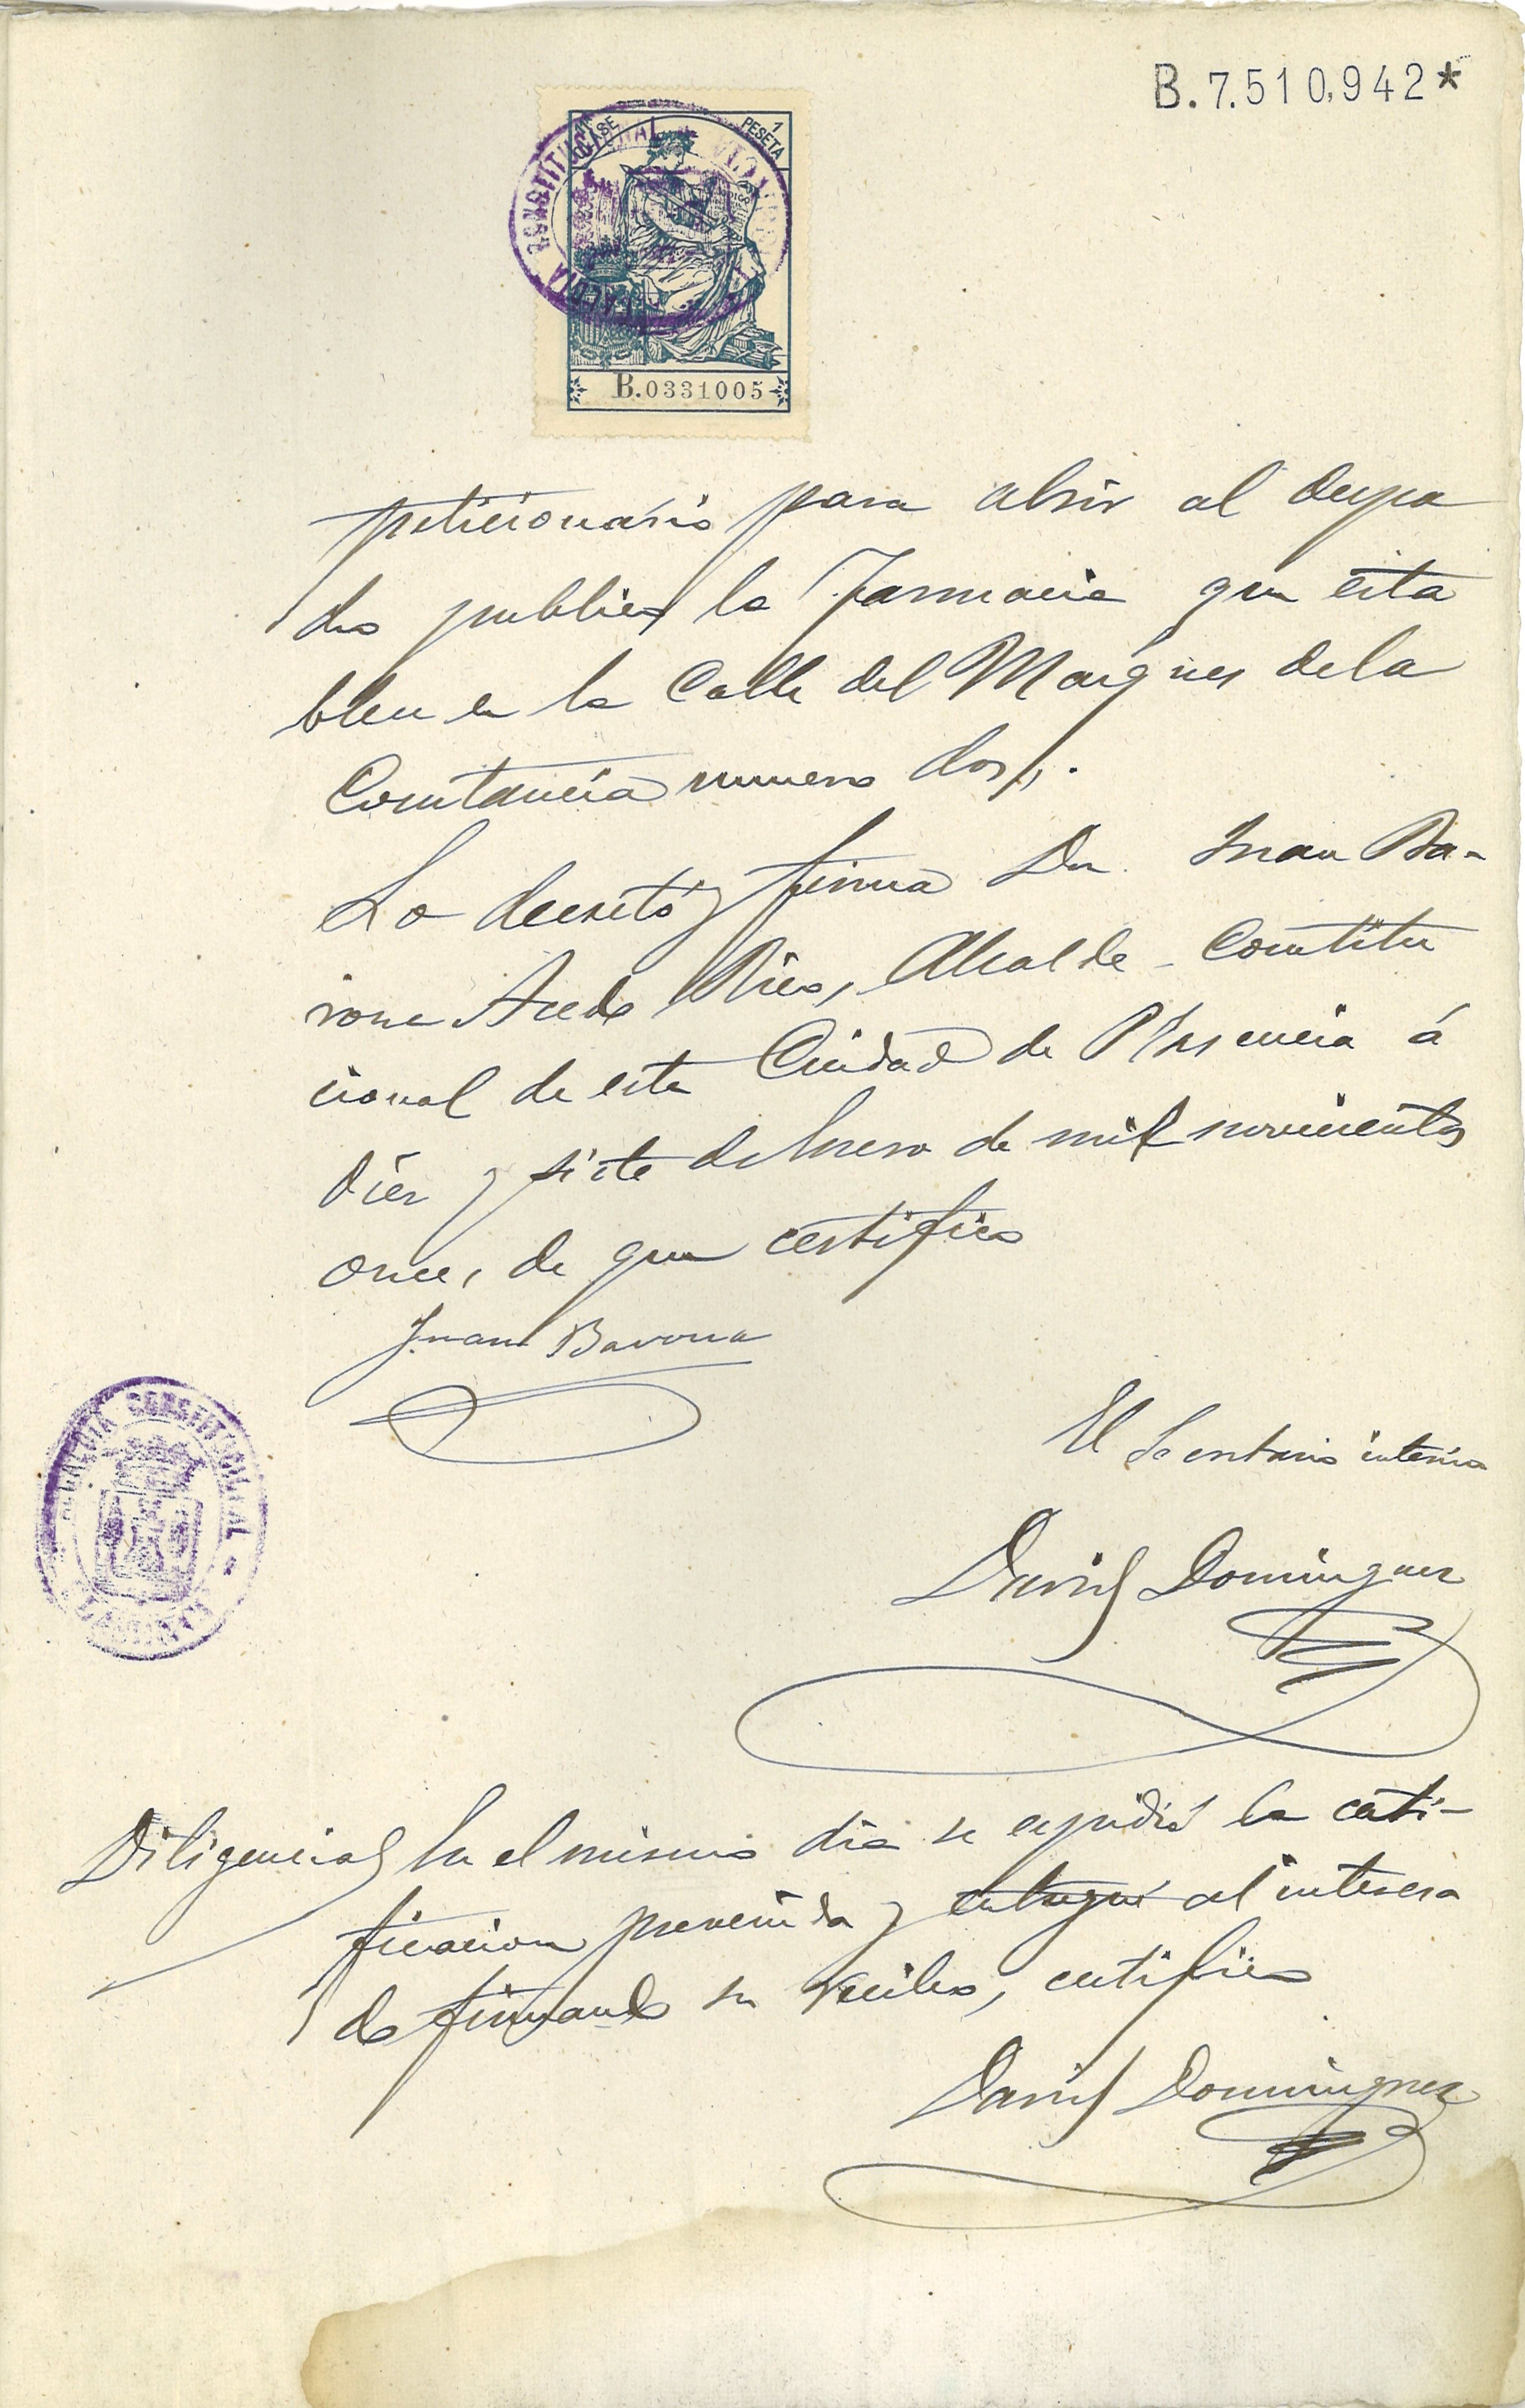 B.7.510.942*
11ª CLASE
1 PESETA
ALCALDIA CONSTITUCIONAL
B.0331005
peticionario para abrir al despa
cho publico la Farmacia que esta
blece en la Calle del Marqués de la
Constancia numero dos,.
Lo decretó y firma Dn. Juan Ba-
rona Acedo Rico, Alcalde Constitu
cional de esta Ciudad de Plasencia á
diez y siete de Enero de mil novecientos
once, de que certifico
Juan Barona
El Secretario interino
ALCALDIA CONSTITUCIONAL
David Dominguez
Diligencia} En el mismo dia se expidió la certi-
ficacion prevenida y entregué al interesa
do firmando su recibo, certifico
David Dominguez